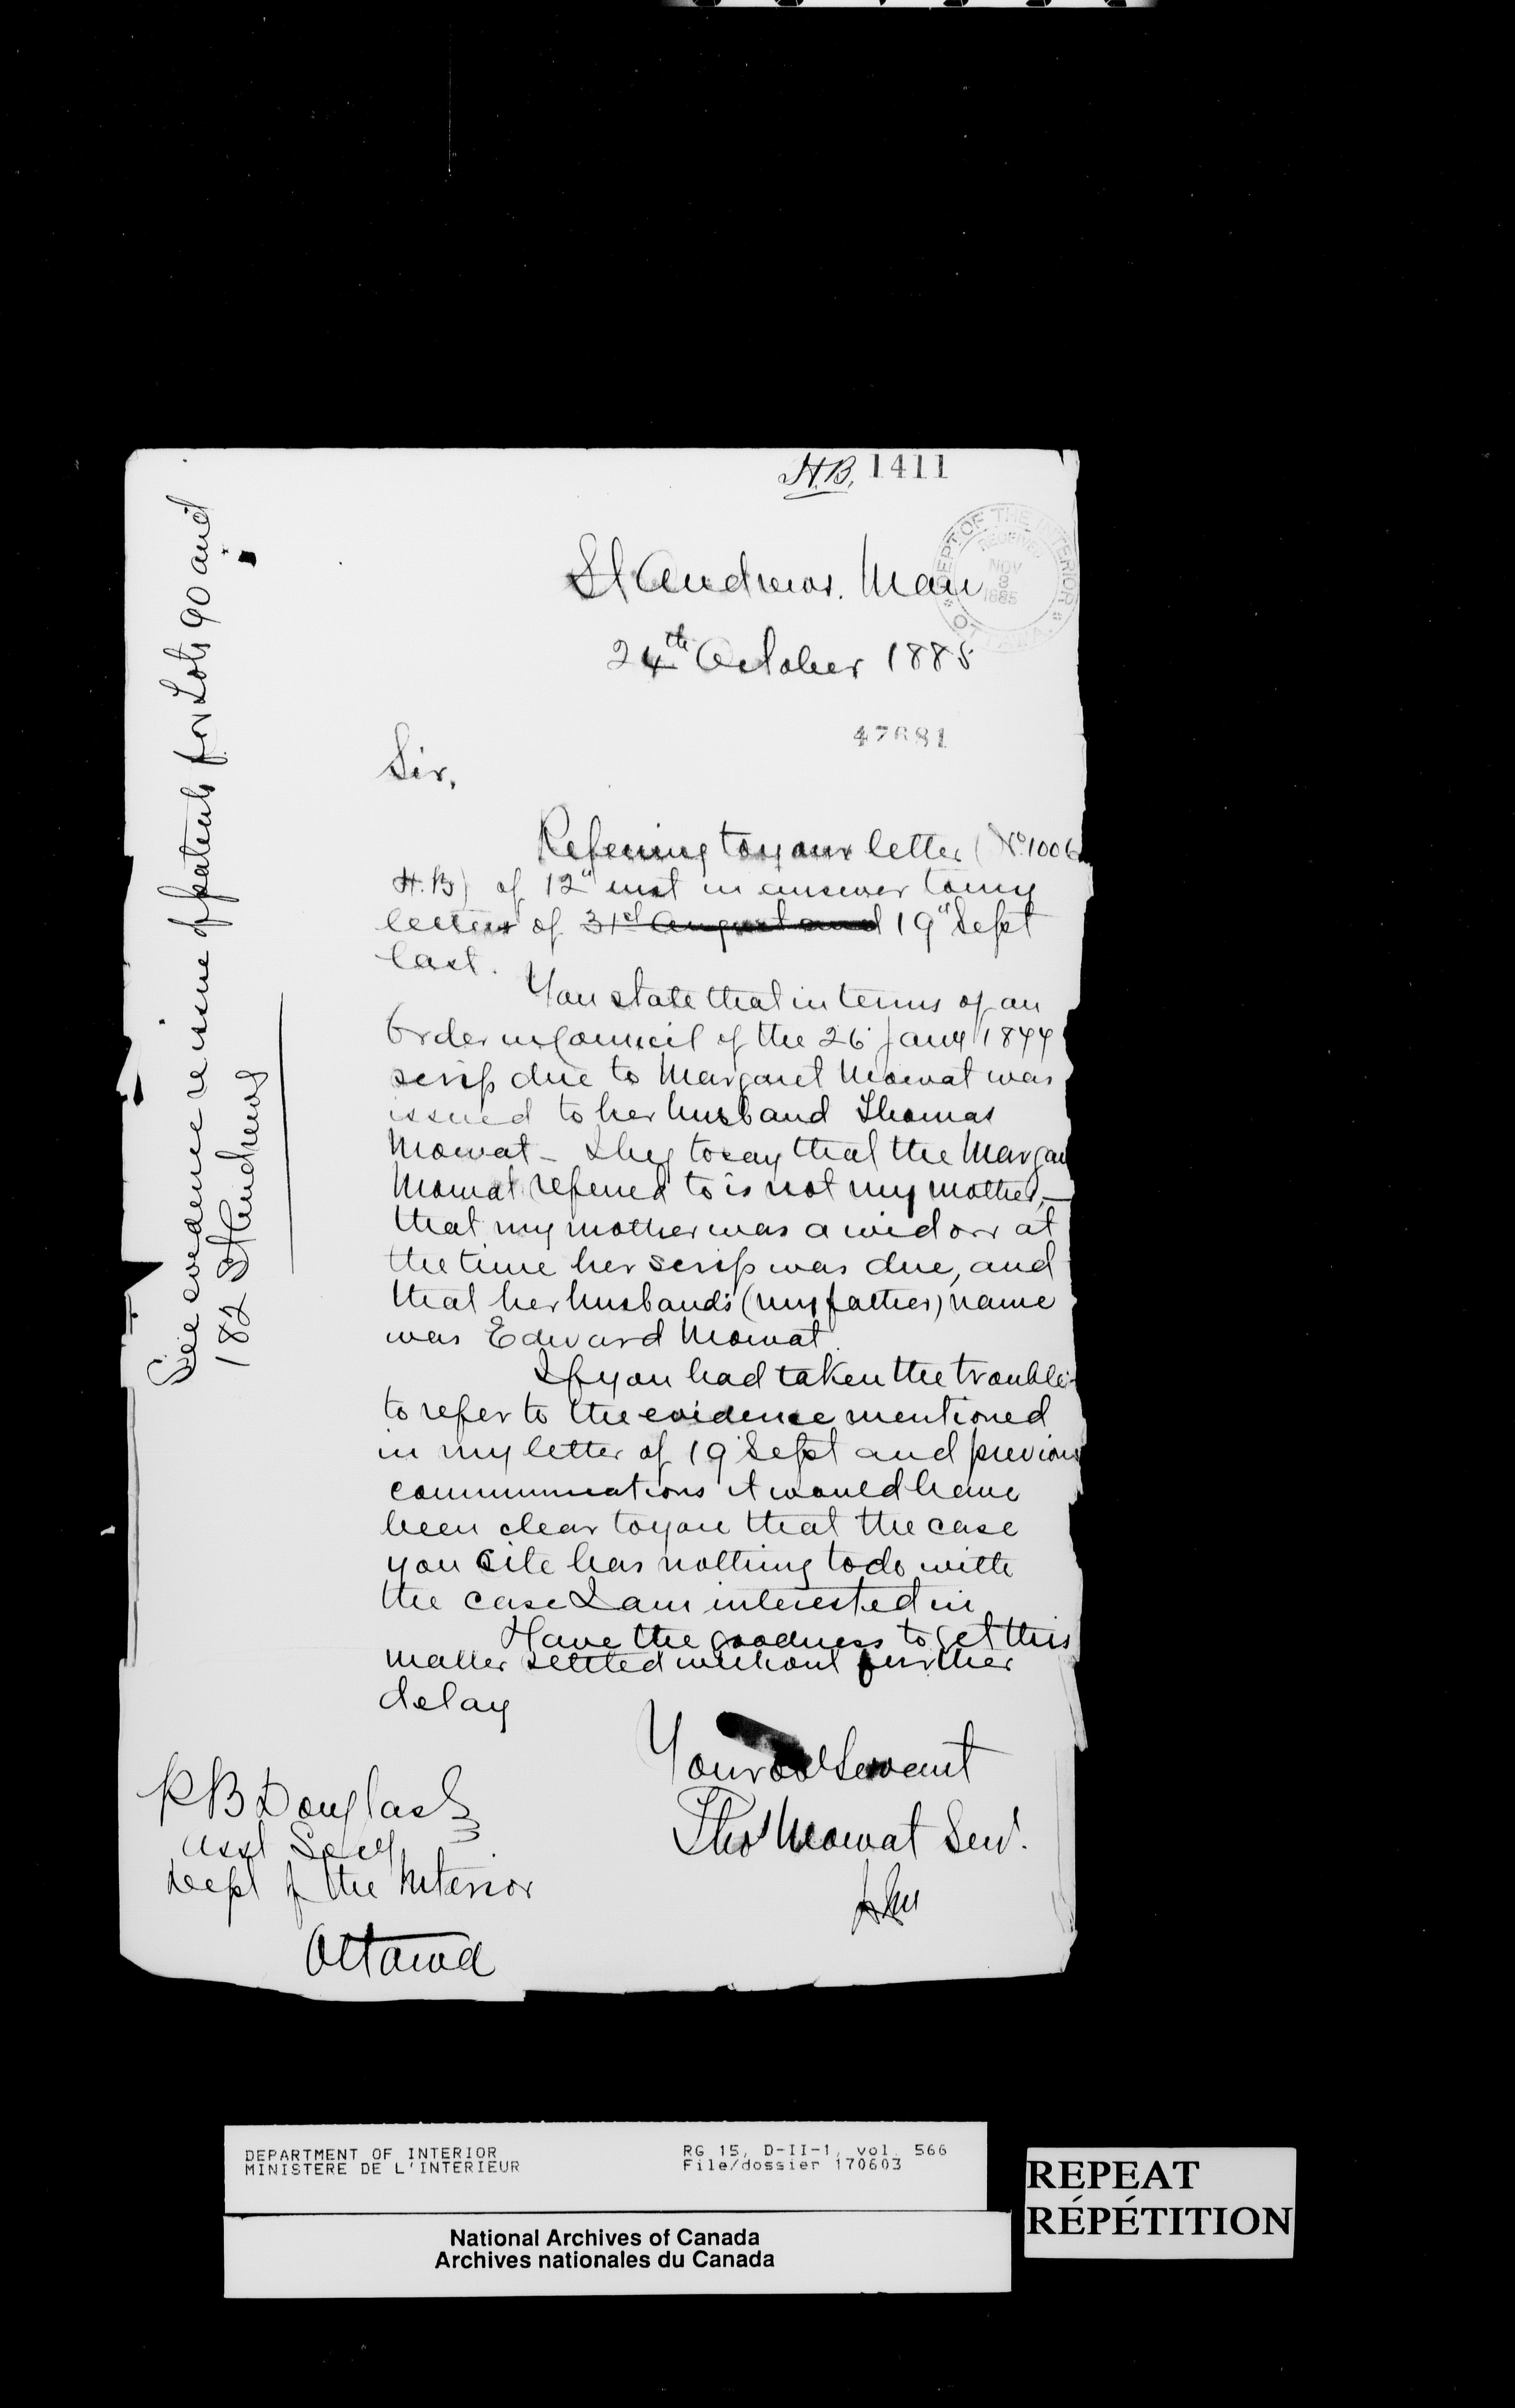 H.B. 1411
DEPT OF THE INTERIOR
RECEIVED
NOV
3
1885
OTTAWA
St Andrews. Man
24th October 1885
47681
Sir,
Referring to your letter (No 1006
H.B) of 12th inst in answer to my
letter of 31st August and 19th Sept
last.
You state that in terms of an
Order in Council of the 26 Jany 1877
scrip due to Margaret Mowat was
issued to her husband Thomas
Mowat - I beg to say that the Margar
Mowat referred to is not my mother, —
that my mother was a widow at
the time her scrip was due, and
that her husband's (my father) name
was Edward Mowat.
If you had taken the trouble
to refer to the evidence mentioned
in my letter of 19 Sept and previous
communications it would have
been clear to you that the case
you cite has nothing to do with
the case I am interested in
Have the goodness to get this
matter settled without further
delay
Your ob Servant
Thos Mowat Senr.
R B Douglas
Asst Secy
Dept of the Interior
Ottawa
See evidence re issue of patents for Lots 90 and
182 St Andrews
DEPARTMENT OF INTERIOR RG 15, D-II-1, vol. 566
MINISTERE DE L'INTERIEUR File/dossier 170603
National Archives of Canada
Archives nationales du Canada
REPEAT
RÉPÉTITION